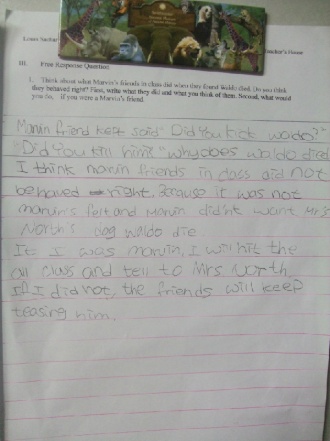 Louis Sachar
acher's House
III. Free Response Question
1. Think about what Marvin's friends in class did when they found Waldo died. Do you think
they behaved right? First, write what they did and what you think of them. Second, what would
you do, if you were a Marvin's friend.
Marvin friend kept said "Did You kick waldo?"
"Did You kill him?" "why does waldo died
I think marvin friends in class did not
behaved right. Because it was not
marvin's felt and Marvin didn't want Mrs
North's dog waldo die
If I was marvin, I will hit the
all class and tell to Mrs North.
If I did not, the friends will keep
teasing him.